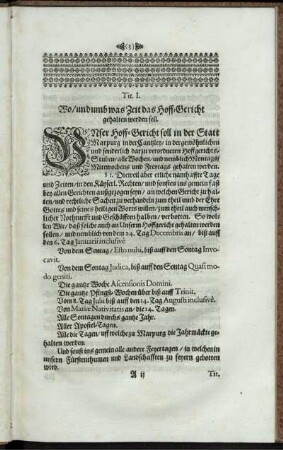 (3)
Tit. I.
Wo/ und umb was Zeit das Hoff-Gericht
gehalten werden soll.
UNser Hoff-Gericht soll in der Statt
Marpurg in der Cantzley/ in der gewöhnlichen
und sonderlich darzu verordneten Hoffgerichts-
Stuben/ alle Wochen/ und nemblich Montags/
Mittwochens und Freytags gehalten werden.
§ 1. Dieweil aber etliche namhaffte Tage
und Zeiten/ in den Käyserl. Rechten/ und sonsten ins gemein fast
bey allen Gerichten außgezogen seyn/ an welchen Gericht zu hal-
ten/ und rechtliche Sachen zu verhandeln zum theil umb der Ehre
Gottes und seines heiligen Worts willen/ zum theil auch mensch-
licher Nothturfft und Geschäfften halben/ verbotten. So wollen
Wir/ daß solche auch an Unserm Hoffgericht gehalten werden
sollen/ und nemblich von dem 24. Tag Decembris an/ biß auff
den 6. Tag Januarii inclusivè.
Von dem Sontag/ Esto mihi, biß auff den Sontag Invo-
cavit.
Von dem Sontag Judica, biß auff den Sontag Quasimo-
do geniti.
Die gantze Woche Ascensionis Domini.
Die gantze Pfingst-Wochen über biß auff Trinit.
Vom 8. Tag Julii biß auff den 14. Tag Augusti inclusivè.
Von Mariæ Nativitatis an/ die 14. Tagen.
Alle Sontagen durchs gantze Jahr.
Aller Apostel-Tagen.
Alle die Tagen/ uff welche zu Marpurg die Jahrmäckte ge-
halten werden.
Und sonst ins gemein alle andere Feyertagen/ in welchen in
unsern Fürstenthumen und Landschafften zu feyern gebotten
wird.
A ij Tit.